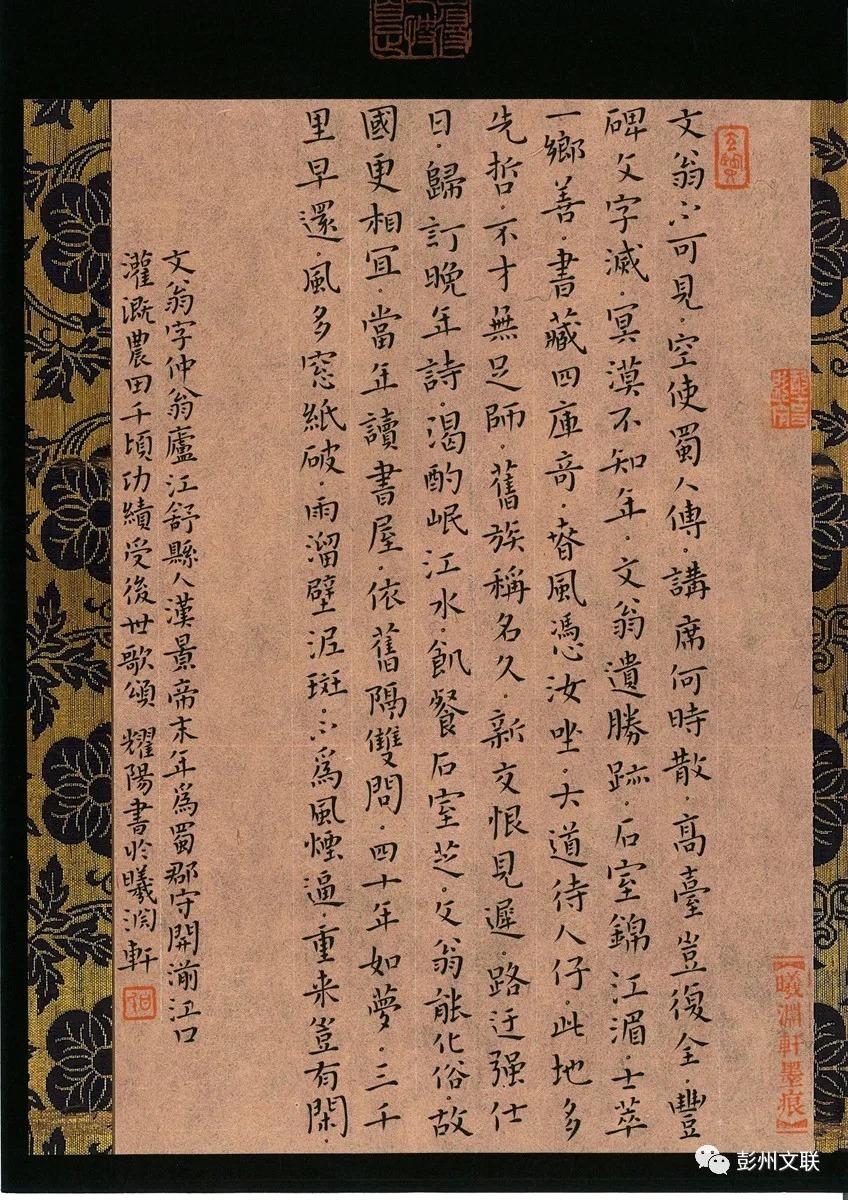 文翁不可見．空使蜀人傳．講席何時散．高臺豈復全．豐
碑文字滅．冥漠不知年．文翁遺勝跡．石室錦江湄．士萃
一鄉善．書藏四庫奇．春風憑汝坐．大道待人仔．此地多
先哲．不才無足師．舊族稱名久．新交恨見遲．路迂强仕
日．歸訂晚年詩．渴酌岷江水．飢餐石室芝．文翁能化俗．故
國更相宜．當年讀書屋．依舊隔雙問．四十年如夢．三千
里早還．風多窓紙破．雨溜壁泥斑．不爲風煙逼．重来豈有閑．
文翁字仲翁廬江舒縣人漢景帝末年爲蜀郡守開湔江口
灌溉農田千頃功績受後世歌頌 耀陽書於曦淵軒
曦淵軒墨痕
彭州文联